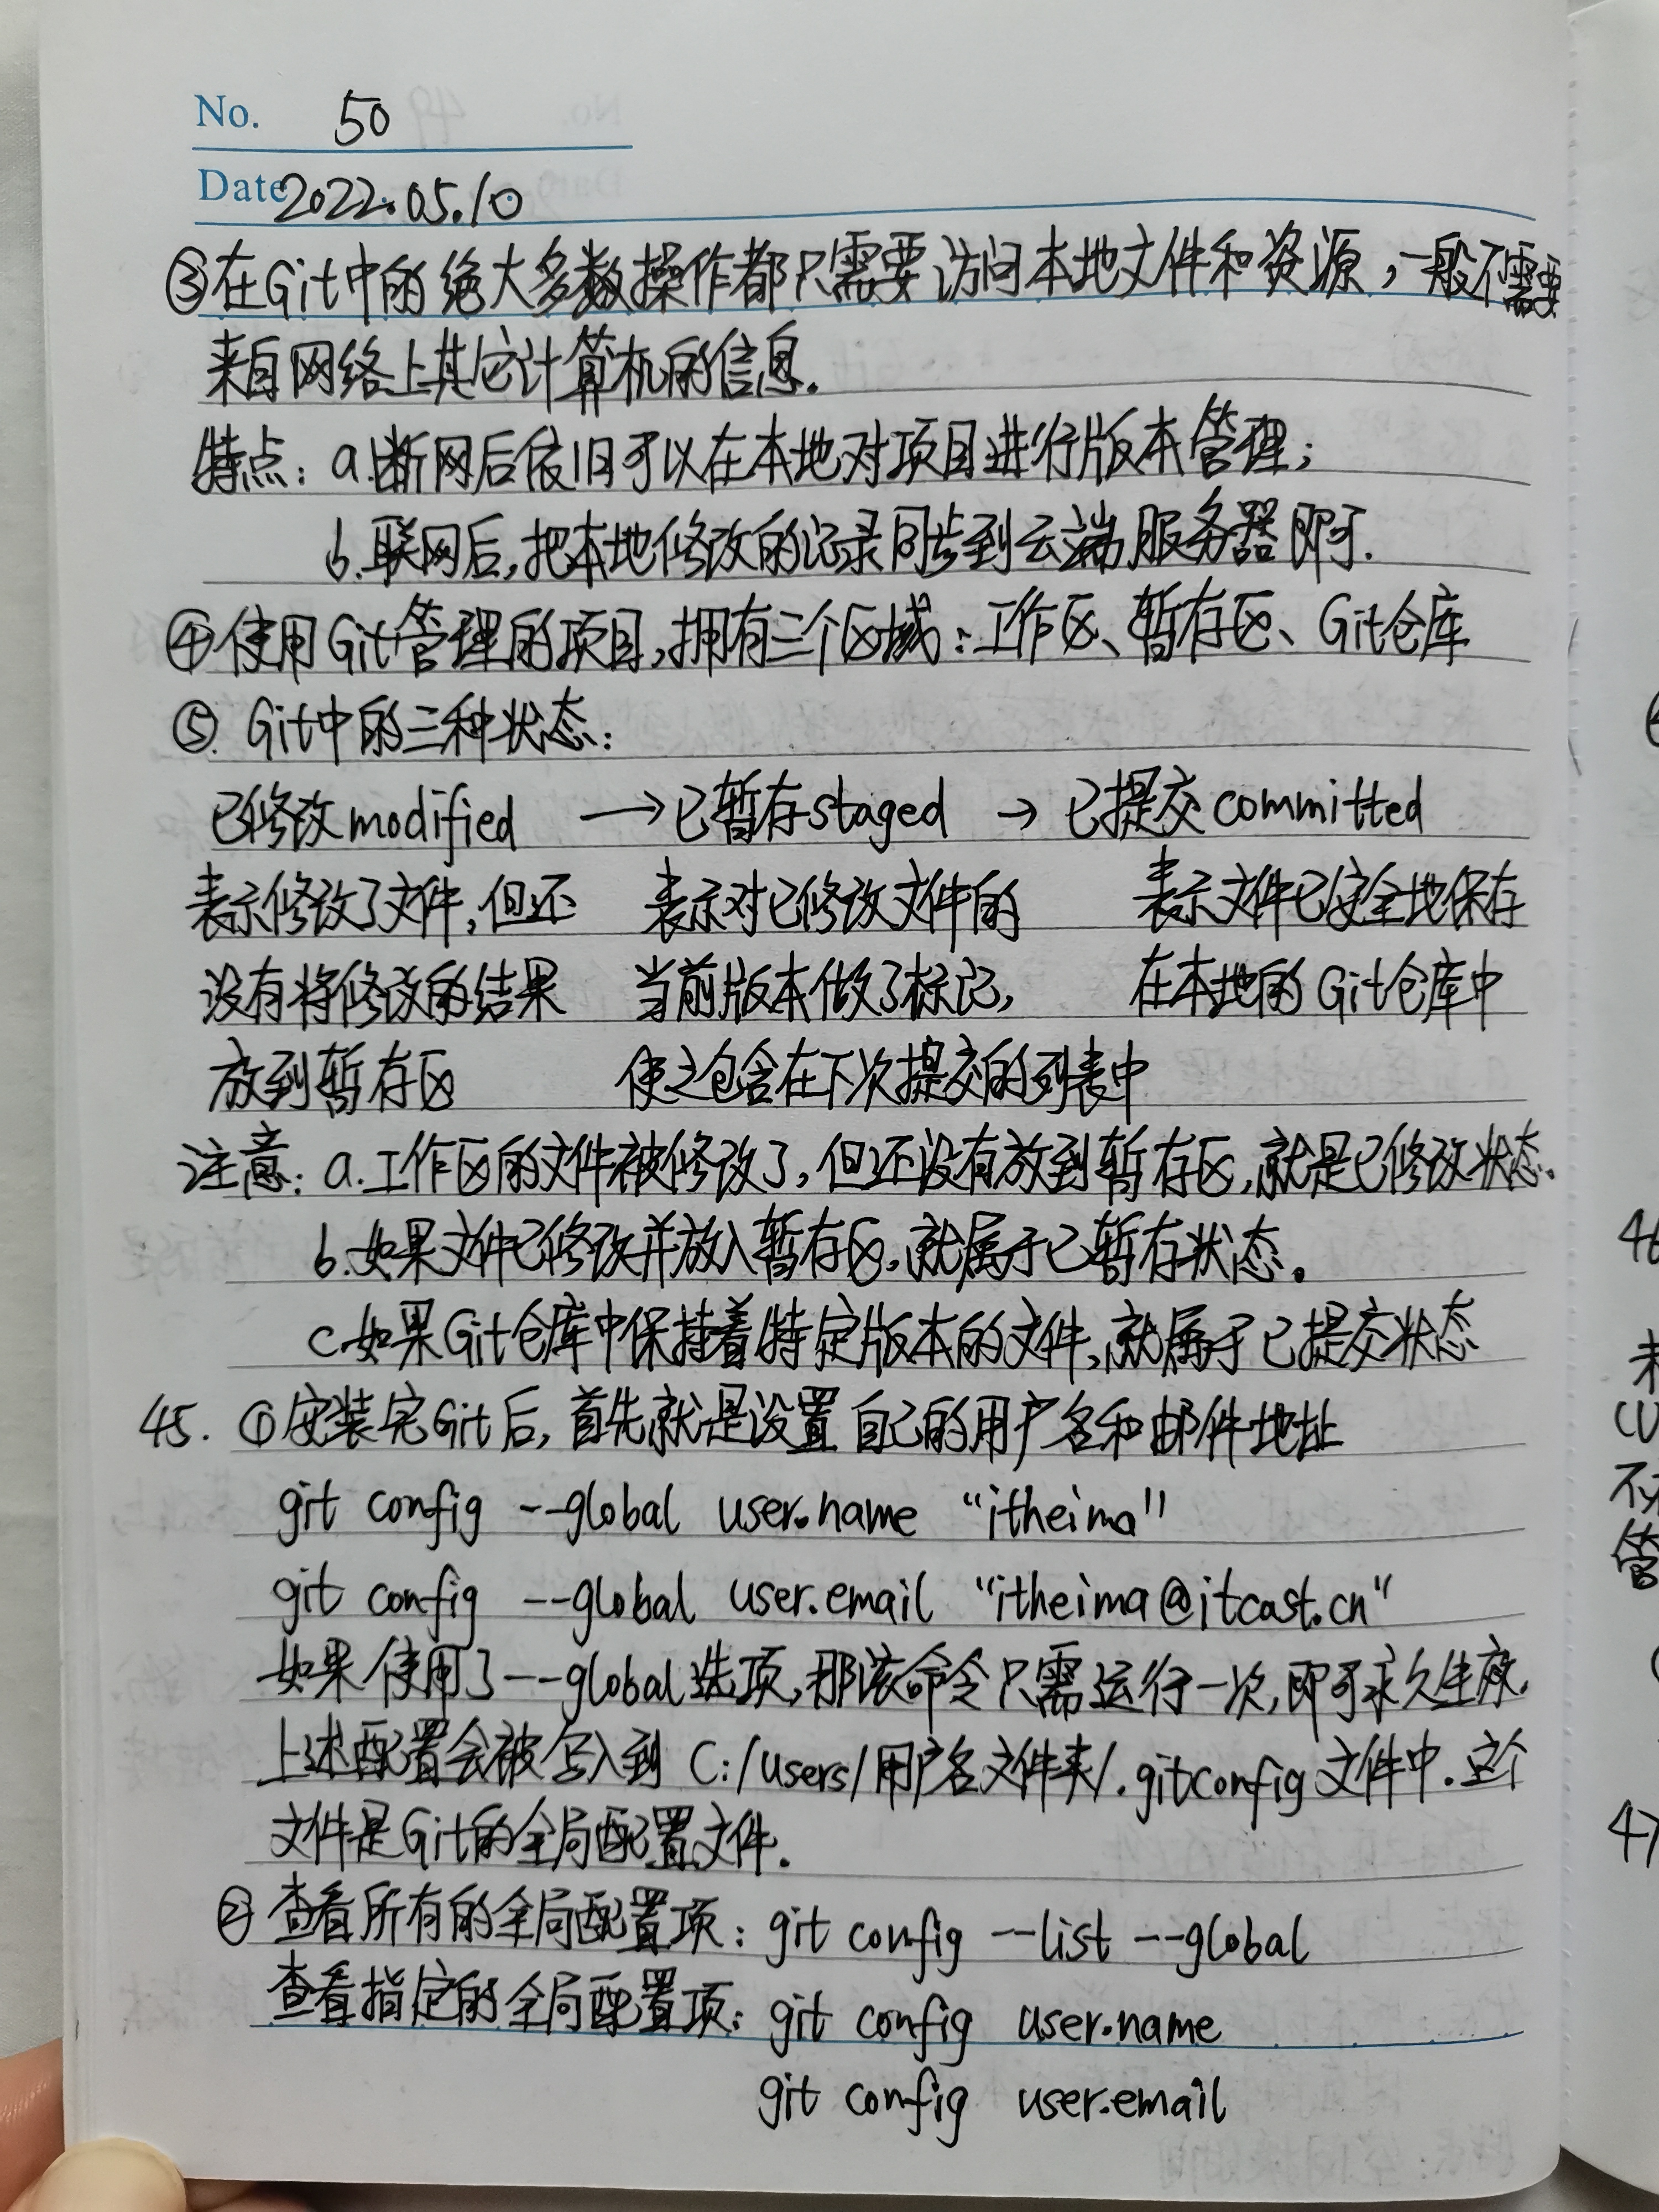 No. 50
Date 2022.05.10
③在Git中的绝大多数操作都只需要访问本地文件和资源，一般不需要
来自网络上其它计算机的信息.
特点：a.断网后依旧可以在本地对项目进行版本管理；
b.联网后,把本地修改的记录同步到云端服务器即可.
④使用Git管理的项目,拥有三个区域：工作区、暂存区、Git仓库
⑤.Git中的三种状态：
已修改modified →已暂存staged → 已提交committed
表示修改了文件,但还 表示对已修改文件的 表示文件已安全地保存
没有将修改的结果 当前版本做了标记, 在本地的Git仓库中
放到暂存区 使之包含在下次提交的列表中
注意：a.工作区的文件被修改了,但还没有放到暂存区,就是已修改状态。
b.如果文件已修改并放入暂存区,就属于已暂存状态。
c.如果Git仓库中保持着特定版本的文件,就属于已提交状态
45. ①安装完Git后,首先就是设置自己的用户名和邮件地址
git config --global user.name “itheima”
git config --global user.email “itheima@itcast.cn”
如果使用了--global选项,那该命令只需运行一次,即可永久生效.
上述配置会被写入到 C:/Users/用户名文件夹/.gitconfig文件中.这个
文件是Git的全局配置文件.
②查看所有的全局配置项：git config --list --global
查看指定的全局配置项：git config user.name
git config user.email
46
47